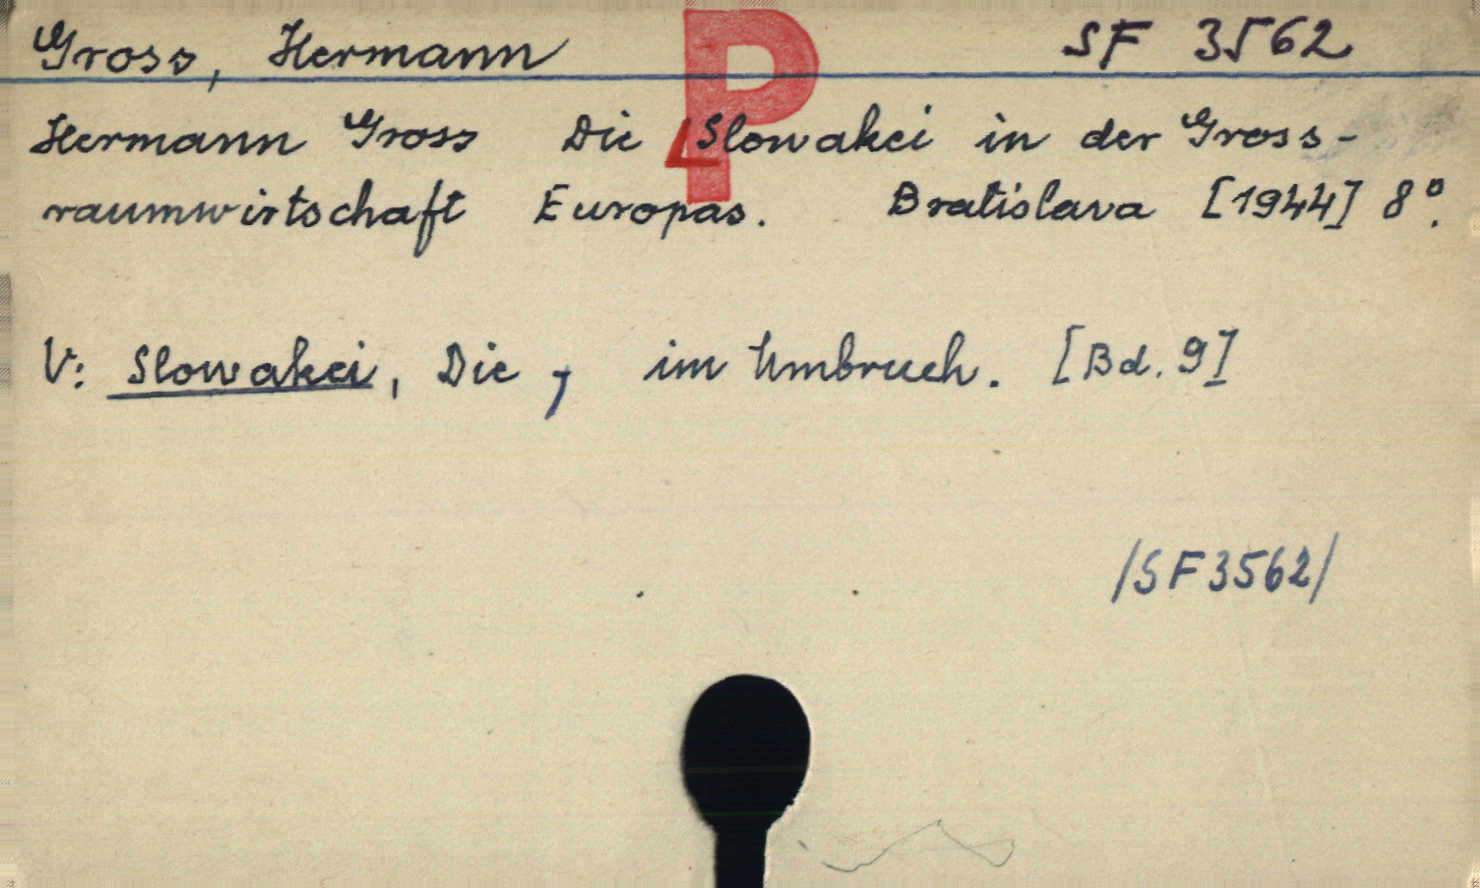 Gross, Hermann P SF 3562
Hermann Gross Die Slowakei in der Gross-
raumwirtschaft Europas. Bratislava [1944] 8°.
V: Slowakei, Die, im Umbruch. [Bd. 9]
/SF3562/